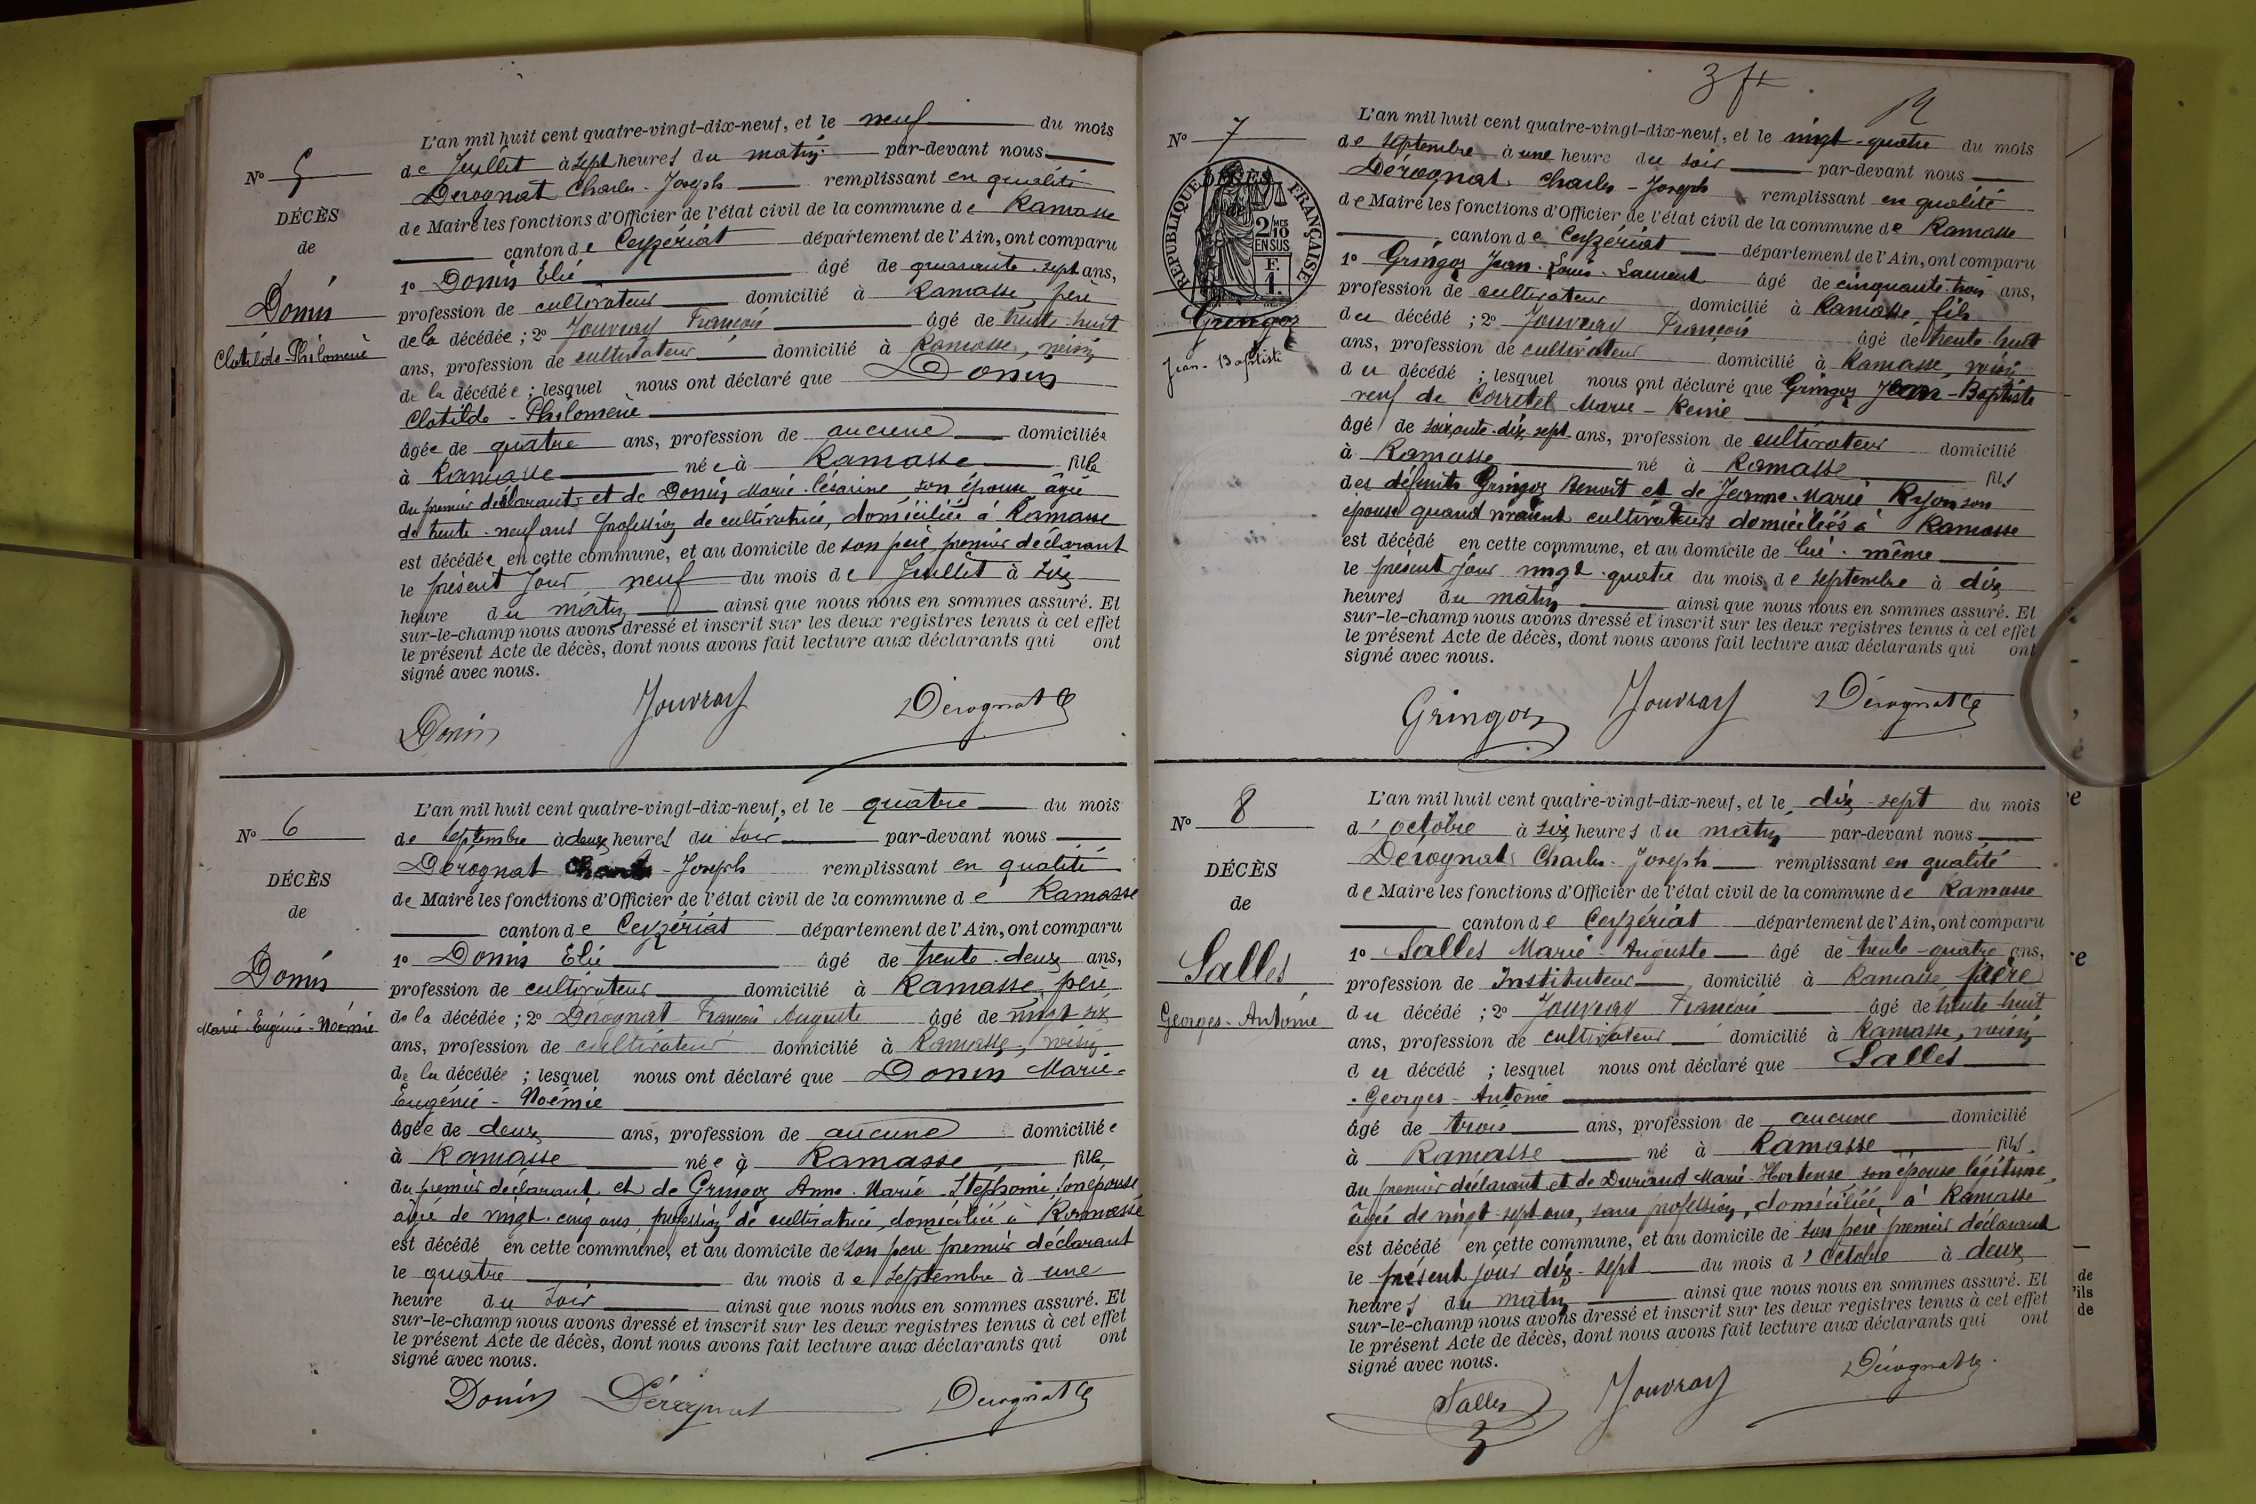 L'an mil huit cent quatre-vingt-dix-neuf, et le neuf du mois
de Juillet à sept heures du matin par-devant nous
Derognat Charles-Joseph remplissant en qualité
de Maire les fonctions d'Officier de l'état civil de la commune de Ramasse
canton de Ceyzériat département de l'Ain, ont comparu
1º Donin Elie âgé de quarante-sept ans,
profession de cultivateur domicilié à Ramasse, père
de la décédée ; 2º Jouvray François âgé de trente-huit
ans, profession de cultivateur domicilié à Ramasse, voisin
de la décédée ; lesquel nous ont déclaré que Donin
Clotilde-Philomène
âgée de quatre ans, profession de aucune domiciliée
à Ramasse née à Ramasse fille
du premier déclarant et de Donin Marie-Césarine son épouse âgée
de trente-neuf ans profession de cultivatrice, domiciliée à Ramasse
est décédée en cette commune, et au domicile de son père premier déclarant
le présent jour neuf du mois de Juillet à six
heure du matin ainsi que nous nous en sommes assuré. Et
sur-le-champ nous avons dressé et inscrit sur les deux registres tenus à cet effet
le présent Acte de décès, dont nous avons fait lecture aux déclarants qui ont
signé avec nous.
Nº 5
DÉCÈS
de
Donin
Clotilde-Philomène
Donin Jouvray Dérognat C
Nº 6
DÉCÈS
de
Donin
Marie-Eugénie-Noémie
L'an mil huit cent quatre-vingt-dix-neuf, et le quatre du mois
de septembre à deux heures du soir par-devant nous
Dérognat Charles-Joseph remplissant en qualité
de Maire les fonctions d'Officier de l'état civil de la commune de Ramasse
canton de Ceyzériat département de l'Ain, ont comparu
1º Donin Elie âgé de trente-deux ans,
profession de cultivateur domicilié à Ramasse, père
de la décédée ; 2º Dérognat François Auguste âgé de vingt-six
ans, profession de cultivateur domicilié à Ramasse, voisin
de la décédée ; lesquel nous ont déclaré que Donin Marie-
Eugénie-Noémie
âgée de deux ans, profession de aucune domiciliée
à Ramasse née à Ramasse fille
du premier déclarant et de Gringoz Anne-Marie-Stéphanie son épouse
âgée de vingt-cinq ans, profession de cultivatrice, domiciliée à Ramasse
est décédé en cette commune, et au domicile de son père premier déclarant
le quatre du mois de septembre à une
heure du soir ainsi que nous nous en sommes assuré. Et
sur-le-champ nous avons dressé et inscrit sur les deux registres tenus à cet effet
le présent Acte de décès, dont nous avons fait lecture aux déclarants qui ont
signé avec nous.
Donin Dérognat Dérognat C
3 f
Nº 7
DÉCÈS
de
RÉPUBLIQUE FRANÇAISE
2/10 MES
EN SUS
F.
1.
Gringoz
Jean-Baptiste
L'an mil huit cent quatre-vingt-dix-neuf, et le vingt-quatre du mois
de septembre à une heure du soir par-devant nous
Dérognat Charles-Joseph remplissant en qualité
de Maire les fonctions d'Officier de l'état civil de la commune de Ramasse
canton de Ceyzériat département de l'Ain, ont comparu
1º Gringoz Jean-Louis-Laurent âgé de cinquante-trois ans,
profession de cultivateur domicilié à Ramasse, fils
du décédé ; 2º Jouvray François âgé de trente-huit
ans, profession de cultivateur domicilié à Ramasse, voisin
du décédé ; lesquel nous ont déclaré que Gringoz Jean-Baptiste
veuf de Carretel Marie-Reine
âgé de soixante-dix-sept ans, profession de cultivateur domicilié
à Ramasse né à Ramasse fils
des défunts Gringoz Benoît et de Jeanne-Marie son
épouse quand vivaient cultivateurs domiciliés à Ramasse
est décédé en cette commune, et au domicile de lui-même
le présent jour vingt-quatre du mois de septembre à dix
heures du matin ainsi que nous nous en sommes assuré. Et
sur-le-champ nous avons dressé et inscrit sur les deux registres tenus à cet effet
le présent Acte de décès, dont nous avons fait lecture aux déclarants qui ont
signé avec nous.
Gringoz Jouvray Dérognat C
Nº 8
DÉCÈS
de
Salles
Georges-Antonie
L'an mil huit cent quatre-vingt-dix-neuf, et le dix-sept du mois
d'octobre à six heures du matin par-devant nous
Dérognat Charles-Joseph remplissant en qualité
de Maire les fonctions d'Officier de l'état civil de la commune de Ramasse
canton de Ceyzériat département de l'Ain, ont comparu
1º Salles Marie-Auguste âgé de trente-quatre ans,
profession de Instituteur domicilié à Ramasse père
du décédé ; 2º Jouvray François âgé de trente-huit
ans, profession de cultivateur domicilié à Ramasse, voisin
du décédé ; lesquel nous ont déclaré que Salles
Georges-Antonie
âgé de trois ans, profession de aucune domicilié
à Ramasse né à Ramasse fils
du premier déclarant et de Durand Marie-Hortense son épouse légitime,
âgée de vingt-sept ans, sans profession, domiciliée à Ramasse
est décédé en cette commune, et au domicile de son père premier déclarant
le présent jour dix-sept du mois d'octobre à deux
heures du matin ainsi que nous nous en sommes assuré. Et
sur-le-champ nous avons dressé et inscrit sur les deux registres tenus à cet effet
le présent Acte de décès, dont nous avons fait lecture aux déclarants qui ont
signé avec nous.
Salles Jouvray Dérognat C